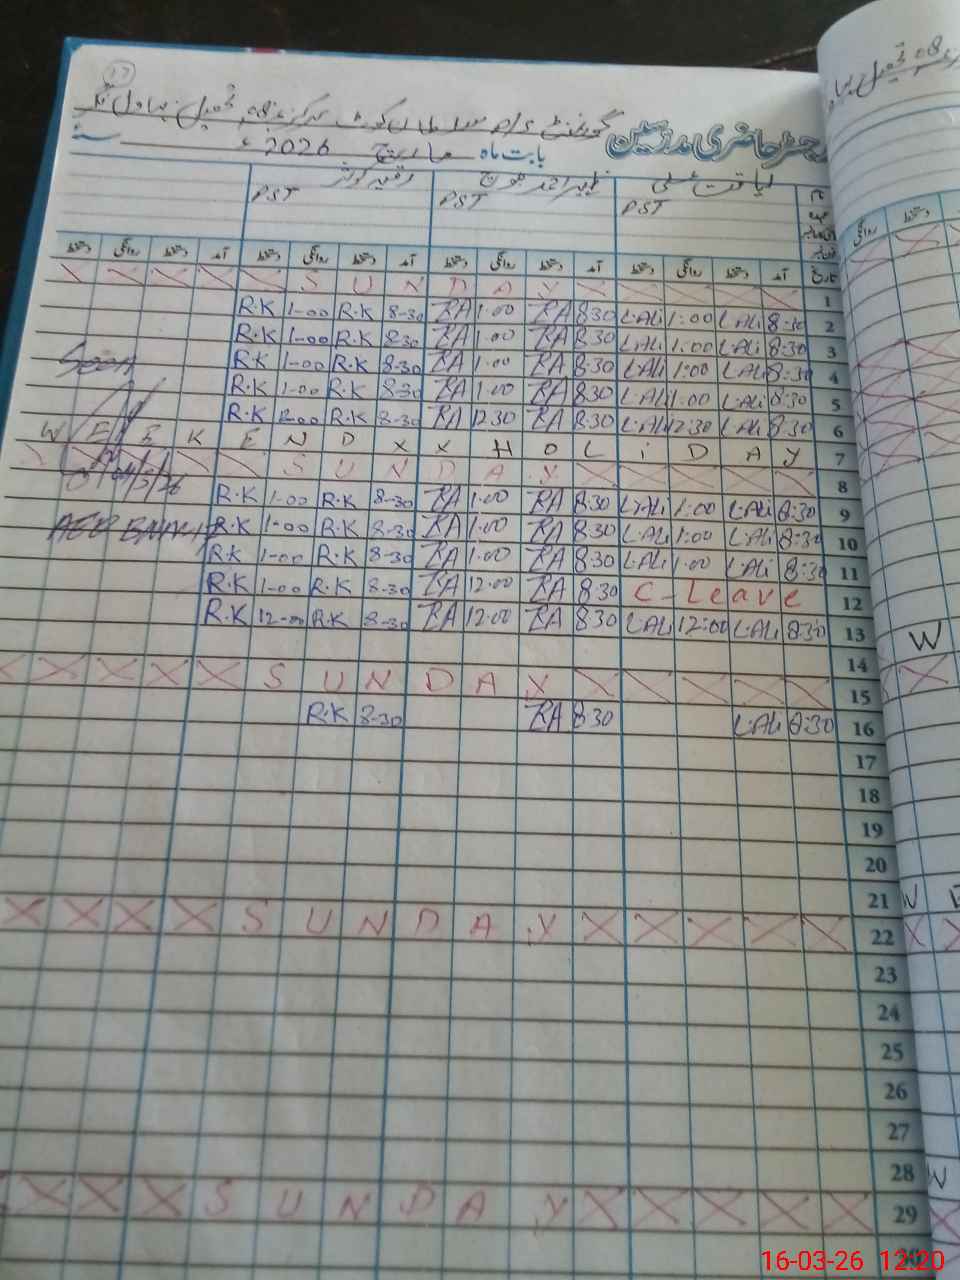 17
رجسٹر حاضری مدرسین
بابت ماہ مارچ 2026ء سنہ
نام لیاقت علی
PST PST PST
تاریخ آمد دستخط روانگی دستخط آمد دستخط روانگی دستخط آمد دستخط روانگی دستخط آمد دستخط روانگی دستخط
S U N D A Y 1
R.K 1-00 R.K 8-30 RA 1.00 RA 8.30 L.ALi 1:00 L.ALi 8:30 2
R.K 1-00 R.K 8-30 RA 1.00 RA 8.30 L.ALi 1:00 L.ALi 8:30 3
R.K 1-00 R.K 8-30 RA 1.00 RA 8.30 L.ALi 1:00 L.ALi 8:30 4
R.K 1-00 R.K 8-30 RA 1.00 RA 8.30 L.ALi 1:00 L.ALi 8:30 5
R.K 12-00 R.K 8-30 RA 12.30 RA 8.30 L.ALi 12:30 L.ALi 8:30 6
W E E K E N D X X H O L i D A Y 7
S U N D A Y 8
R.K 1-00 R.K 8-30 RA 1.00 RA 8.30 L.ALi 1:00 L.ALi 8:30 9
R.K 1-00 R.K 8-30 RA 1.00 RA 8.30 L.ALi 1:00 L.ALi 8:30 10
R.K 1-00 R.K 8-30 RA 1.00 RA 8.30 L.ALi 1:00 L.ALi 8:30 11
R.K 1-00 R.K 8-30 RA 12.00 RA 8.30 C-Leave 12
R.K 12-00 R.K 8-30 RA 12.00 RA 8.30 L.ALi 12:00 L.ALi 8:30 13
14
S U N D A Y 15
R.K 8-30 RA 8.30 L.ALi 8:30 16
17
18
19
20
21
S U N D A Y 22
23
24
25
26
27
28
S U N D A Y 29
30
16-03-26 12:20